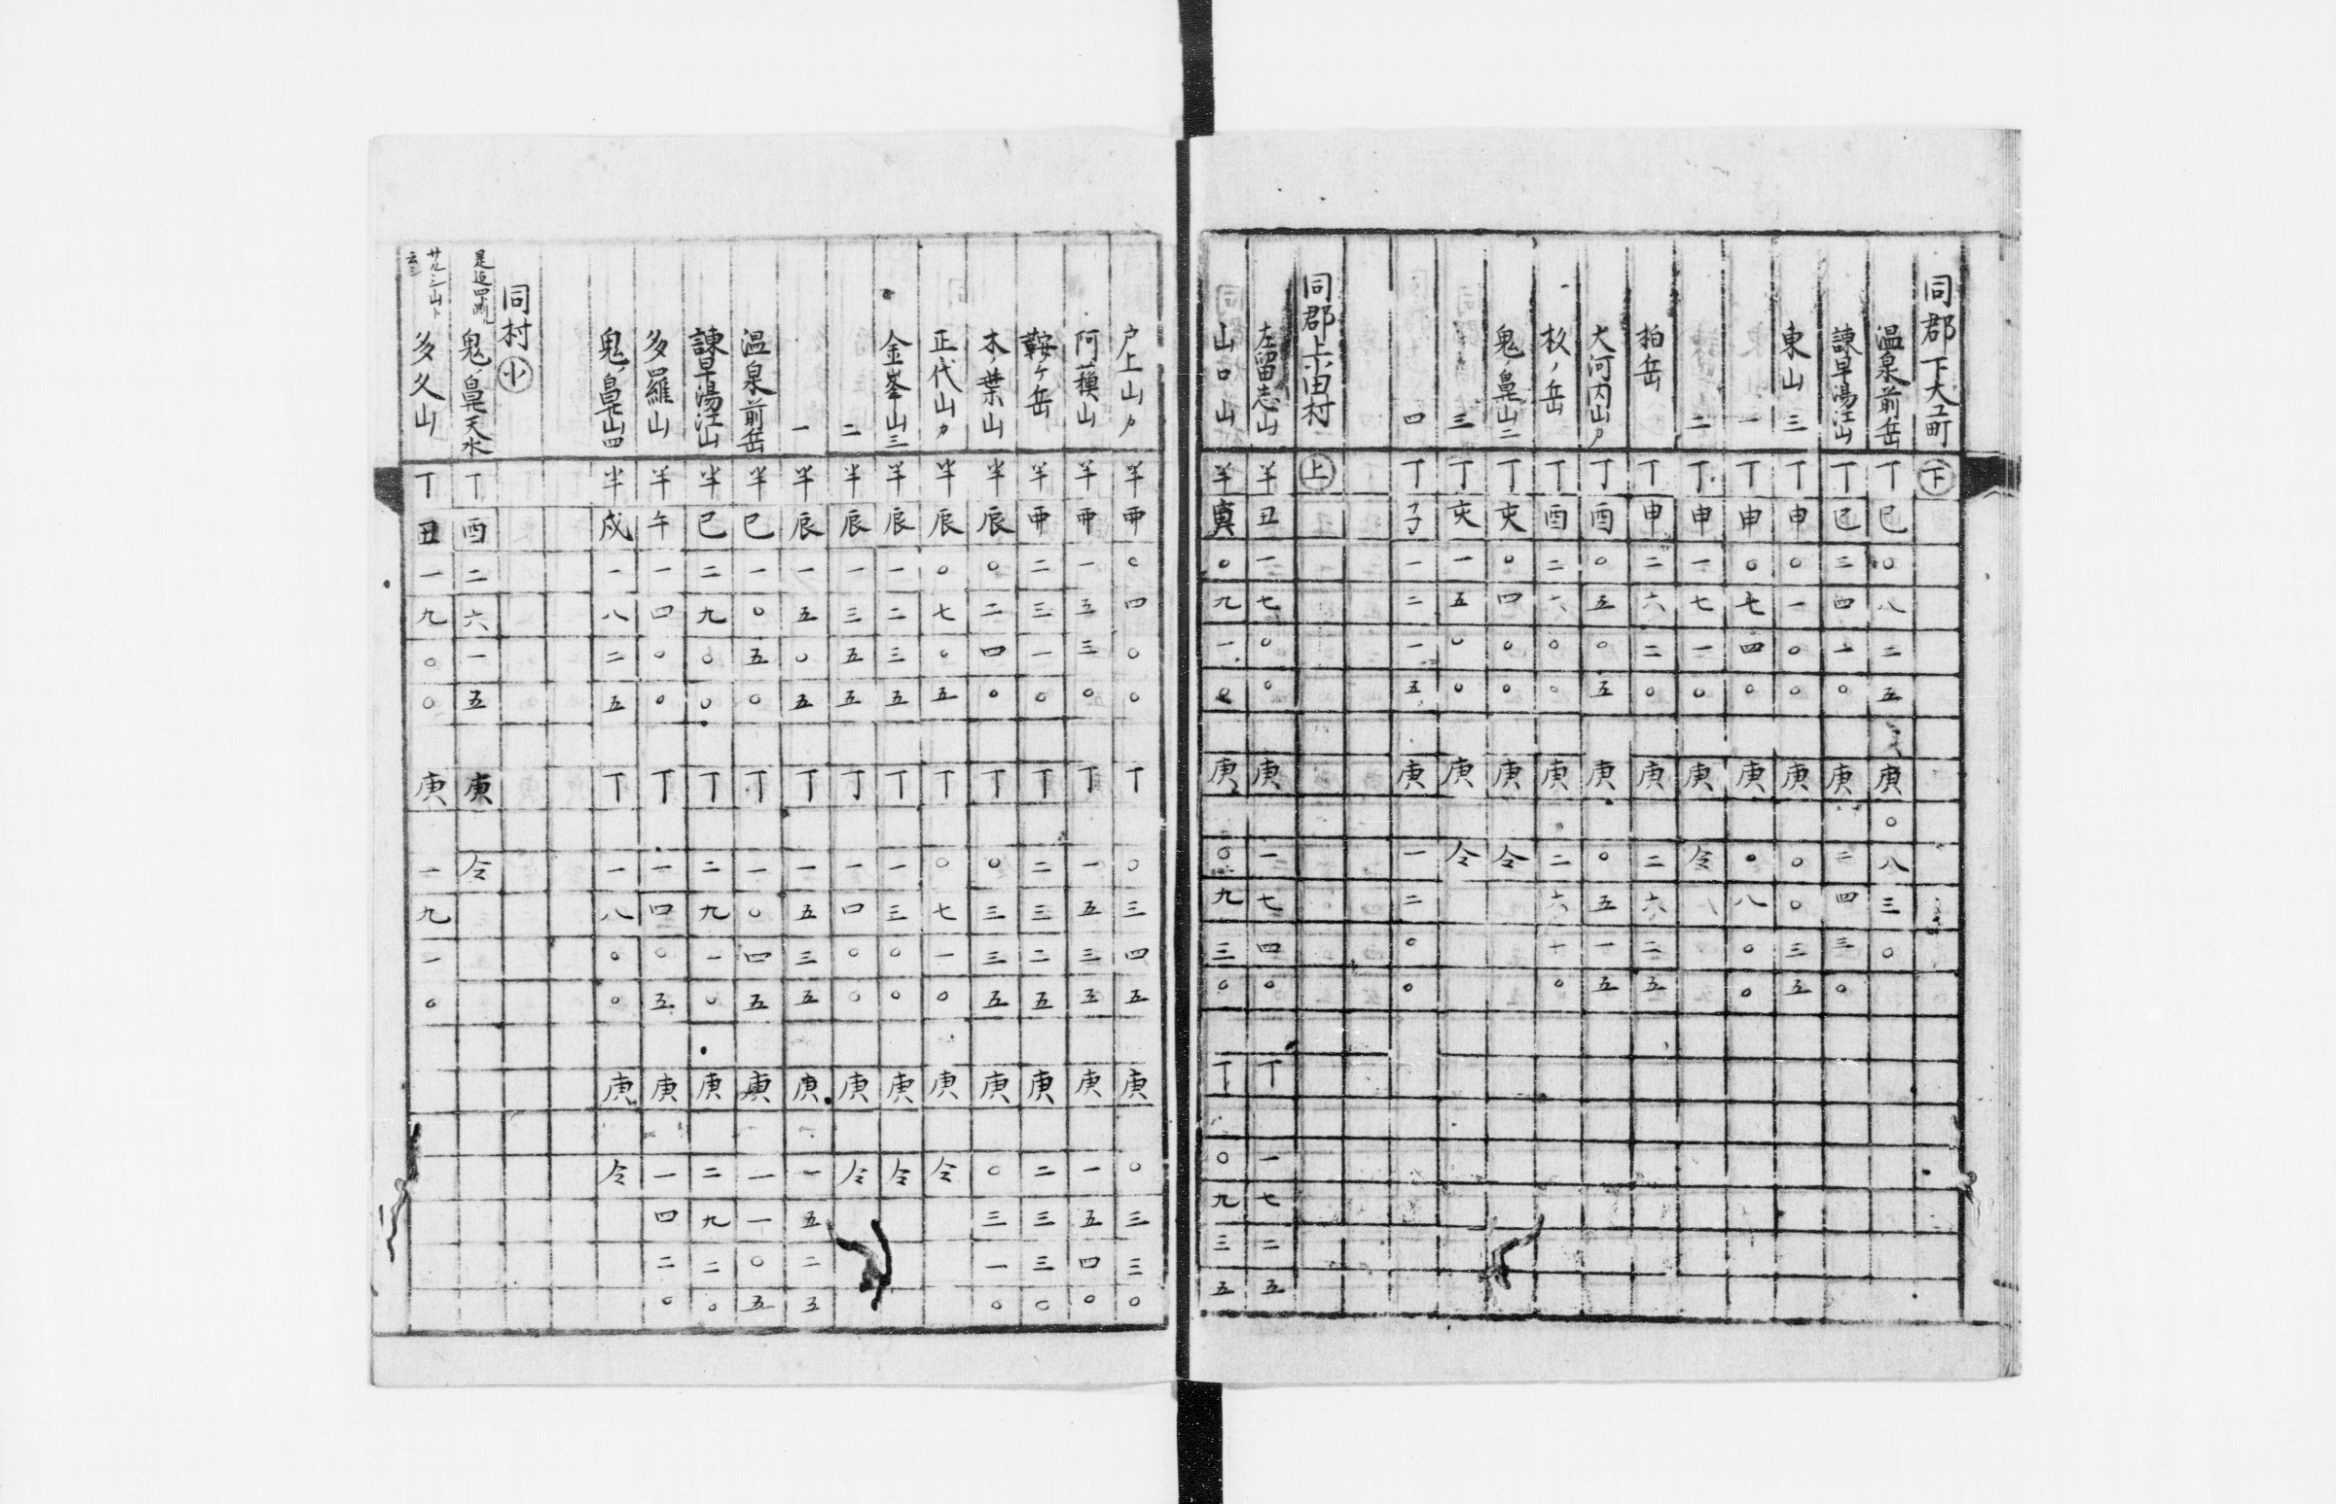 同郡下大町 下
温泉前岳 丁 巳 〇 八 二 五 庚 〇 八 三 〇
諫早湯江山 丁 巳 三 四 一 〇 庚 二 四 三 〇
東山 三 丁 申 〇 一 〇 〇 庚 〇 〇 三 五
一 丁 申 〇 七 四 〇 庚 〇 八 〇 〇
二 丁 申 一 七 一 〇 庚 仝
柏岳 丁 申 二 六 二 〇 庚 二 六 二 五
大河内山カ 丁 酉 〇 五 〇 五 庚 〇 五 一 五
杦ノ岳 丁 酉 二 六 〇 〇 庚 二 六 一 〇
鬼ノ鼻山 二 丁 亥 〇 四 〇 〇 庚 仝
三 丁 亥 一 五 〇 〇 庚 仝
四 丁 子 一 二 一 五 庚 一 二 〇 〇
同郡上田村 上
左留志山 半 丑 一 七 〇 〇 庚 一 七 四 〇 丁 一 七 二 五
山口山 半 寅 〇 九 一 〇 庚 〇 九 三 〇 丁 〇 九 三 五
戸上山カ 半 卯 〇 四 〇 〇 丁 〇 三 四 五 庚 〇 三 三 〇
阿蘓山 半 卯 一 五 三 〇 丁 一 五 三 五 庚 一 五 四 〇
鞍ケ岳 半 卯 二 三 一 〇 丁 二 三 二 五 庚 二 三 三 〇
木ノ葉山 半 辰 〇 二 四 〇 丁 〇 三 三 五 庚 〇 三 一 〇
正代山カ 半 辰 〇 七 〇 五 丁 〇 七 一 〇 庚 仝
金峯山 三 半 辰 一 二 三 五 丁 一 三 〇 〇 庚 仝
二 半 辰 一 三 五 五 丁 一 四 〇 〇 庚 仝
一 半 辰 一 五 〇 五 丁 一 五 三 五 庚 一 五 二 五
温泉前岳 半 巳 一 〇 五 〇 丁 一 〇 四 五 庚 一 一 〇 五
諫早湯江山 半 巳 二 九 〇 〇 丁 二 九 一 〇 庚 二 九 二 〇
多羅山 半 午 一 四 〇 〇 丁 一 四 〇 五 庚 一 四 二 〇
鬼ノ鼻山 四 半 戌 一 八 二 五 丁 一 八 〇 〇 庚 仝
同村 小
鬼ノ鼻天水 丁 酉 二 六 一 五 庚 仝
多久山 丁 丑 一 九 〇 〇 庚 一 九 一 〇